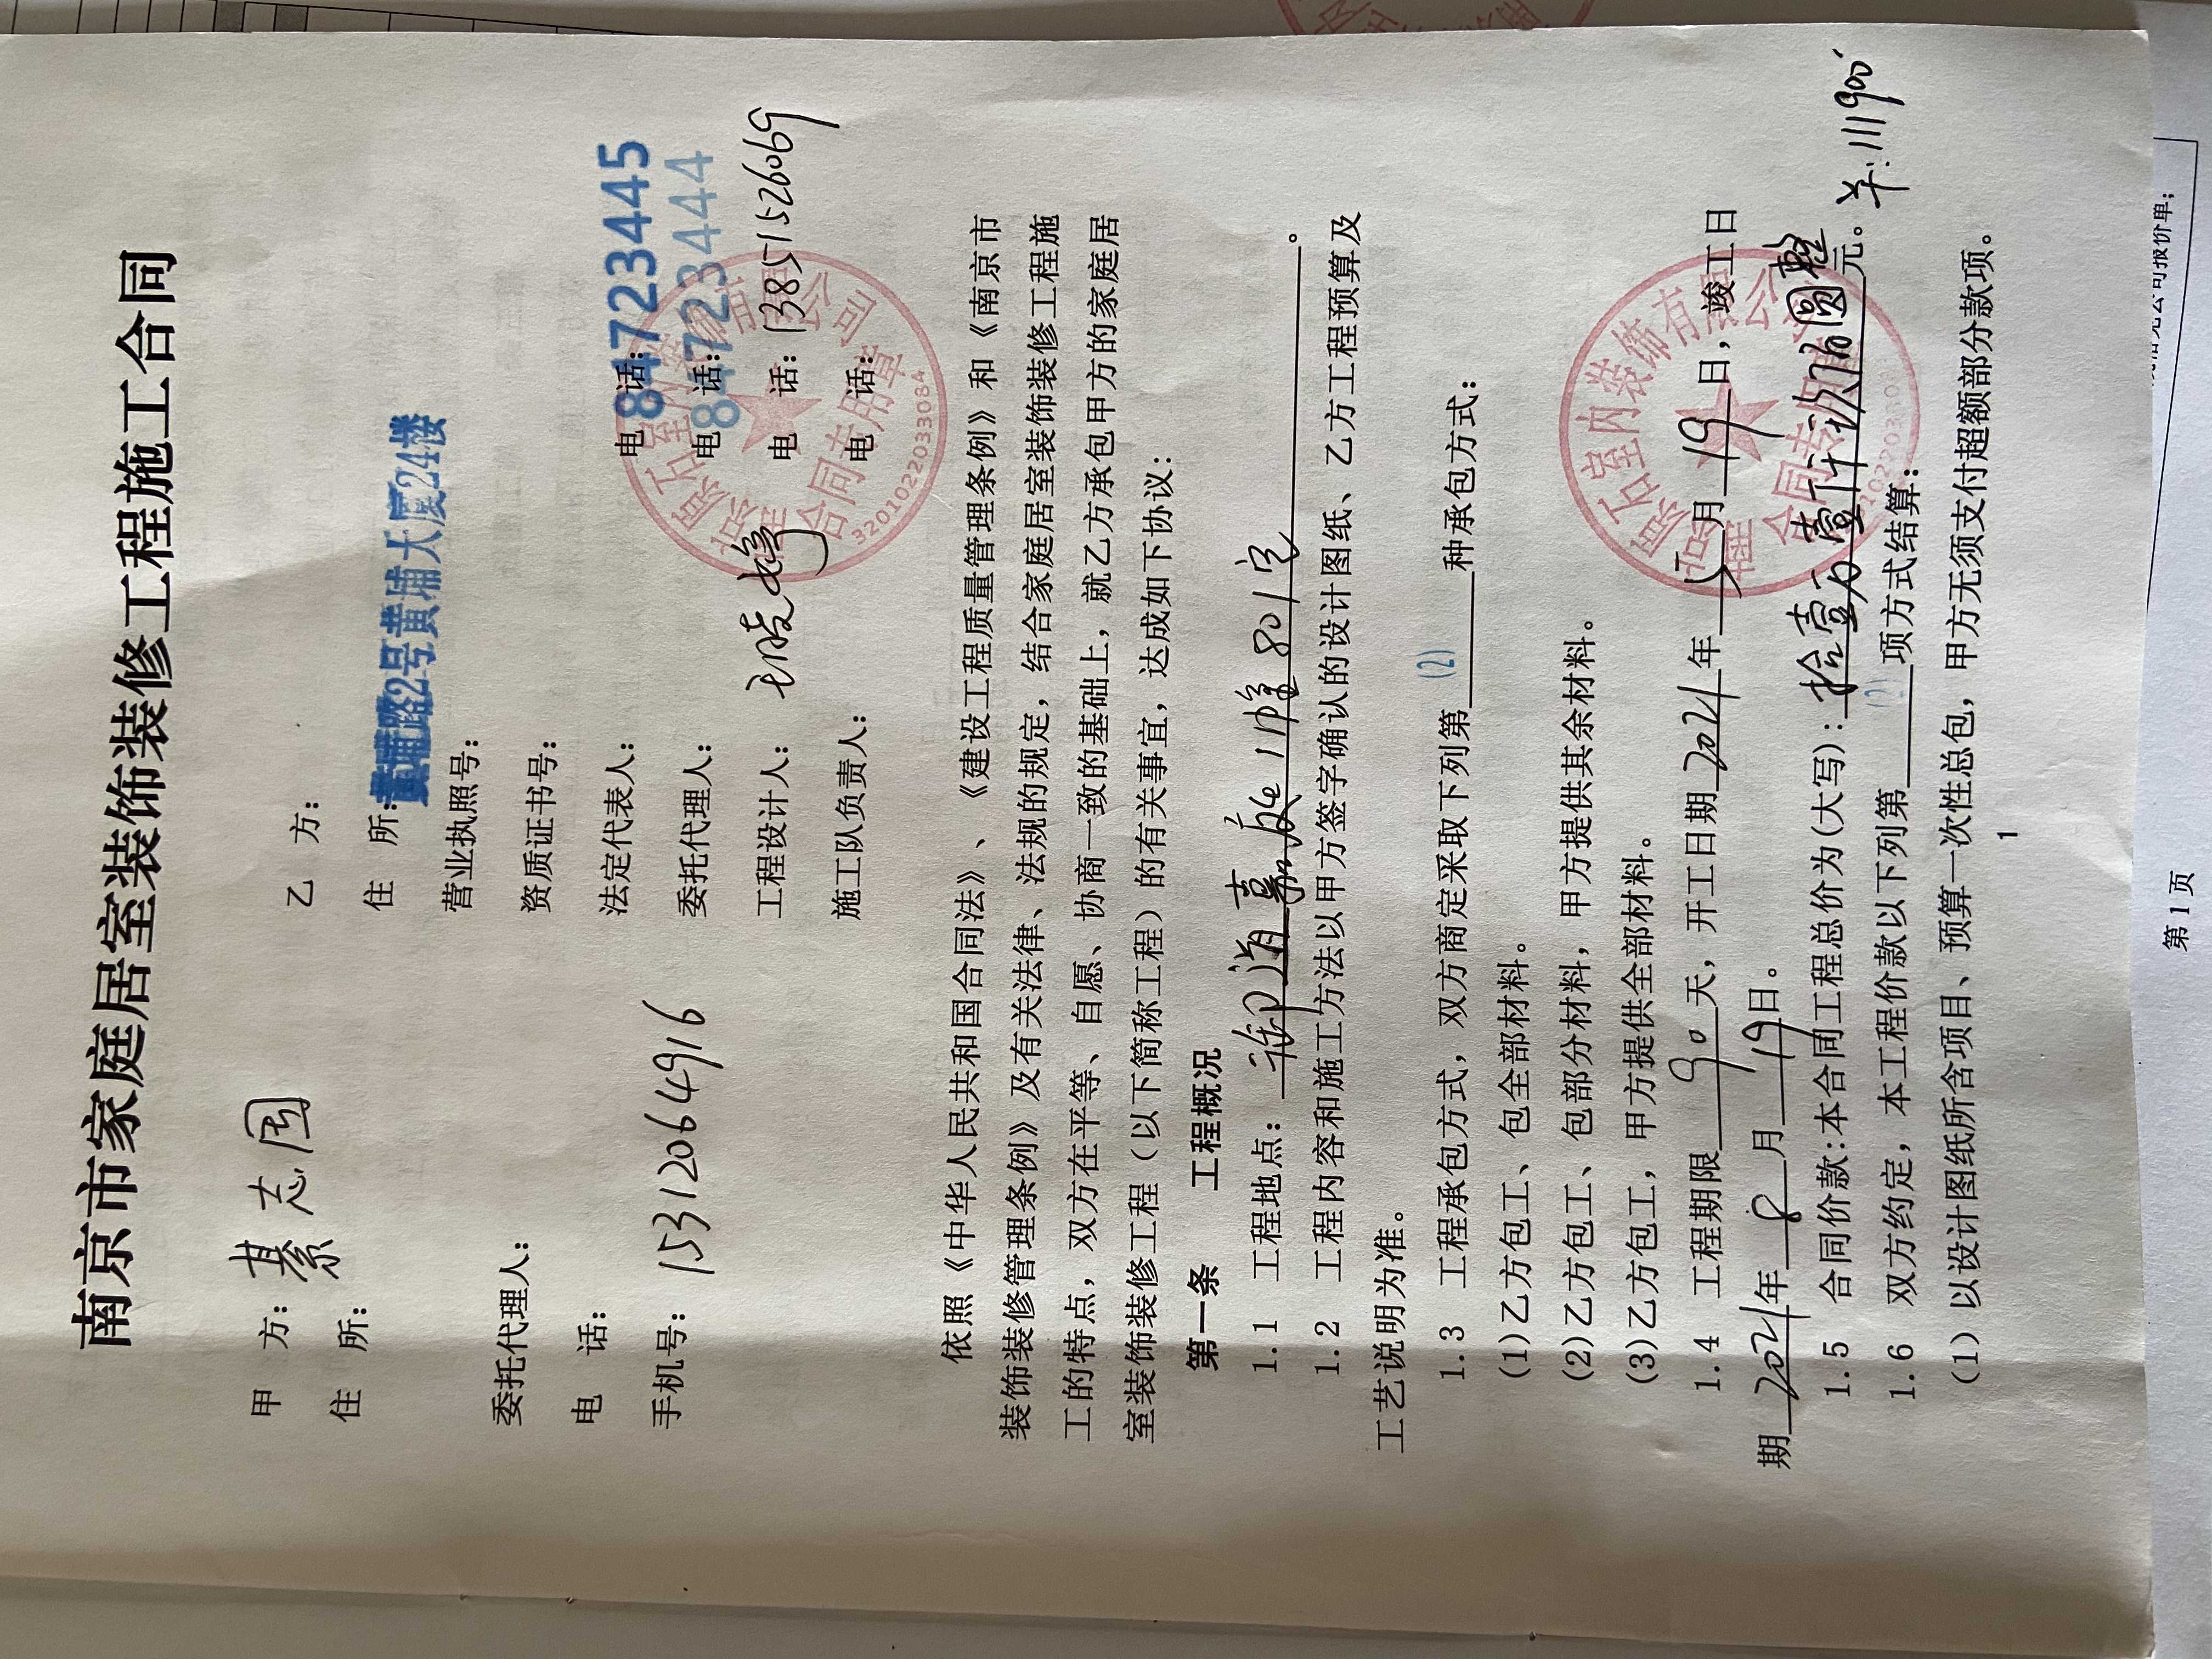 南京市家庭居室装饰装修工程施工合同
甲 方：綦志国
住 所：
委托代理人：
电 话：
手机号：15312064916
乙 方：
住 所：黄埔路2号黄埔大厦24楼
营业执照号：
资质证书号：
法定代表人： 电 话：84723445
委托代理人： 电 话：84723444
工程设计人： 晓婷 电 话：13851526069
施工队负责人： 电 话：
石室内装饰有限公司
合同专用章
3201022033084
依照《中华人民共和国合同法》、《建设工程质量管理条例》和《南京市
装饰装修管理条例》及有关法律、法规的规定，结合家庭居室装饰装修工程施
工的特点，双方在平等、自愿、协商一致的基础上，就乙方承包甲方的家庭居
室装饰装修工程（以下简称工程）的有关事宜，达成如下协议：
第一条 工程概况
1.1 工程地点： 嘉 1幢801室。
1.2 工程内容和施工方法以甲方签字确认的设计图纸、乙方工程预算及
工艺说明为准。
1.3 工程承包方式，双方商定采取下列第(2)种承包方式：
(1)乙方包工、包全部材料。
(2)乙方包工、包部分材料，甲方提供其余材料。
(3)乙方包工，甲方提供全部材料。
1.4 工程期限90天，开工日期2021年5月19日，竣工日
期2021年8月19日。
1.5 合同价款：本合同工程总价为(大写)：拾壹万壹仟玖佰圆整元。羊:111900
1.6 双方约定，本工程价款以下列第(2)项方式结算：
(1)以设计图纸所含项目、预算一次性总包，甲方无须支付超额部分款项。
石室内装饰有限公司
合同专用章
1
公司报价单；
第1页